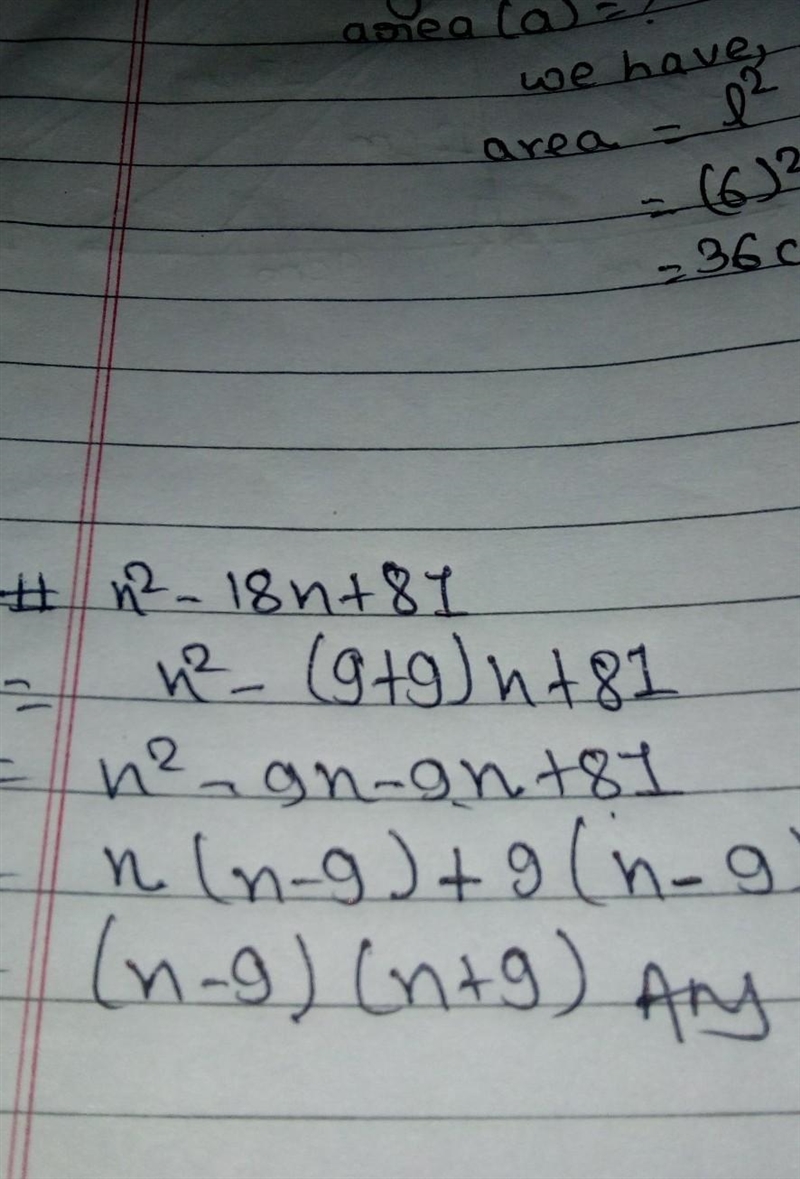 area (a) = ?
we have,
area = l²
= (6)²
= 36 c
# n² - 18n + 81
= n² - (9+9)n + 81
= n² - 9n - 9n + 81
- n (n-9) + 9 (n-9)
- (n-9) (n+9) Ans